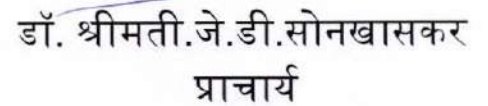 डॉ. श्रीमती.जे.डी.सोनखासकर
प्राचार्य